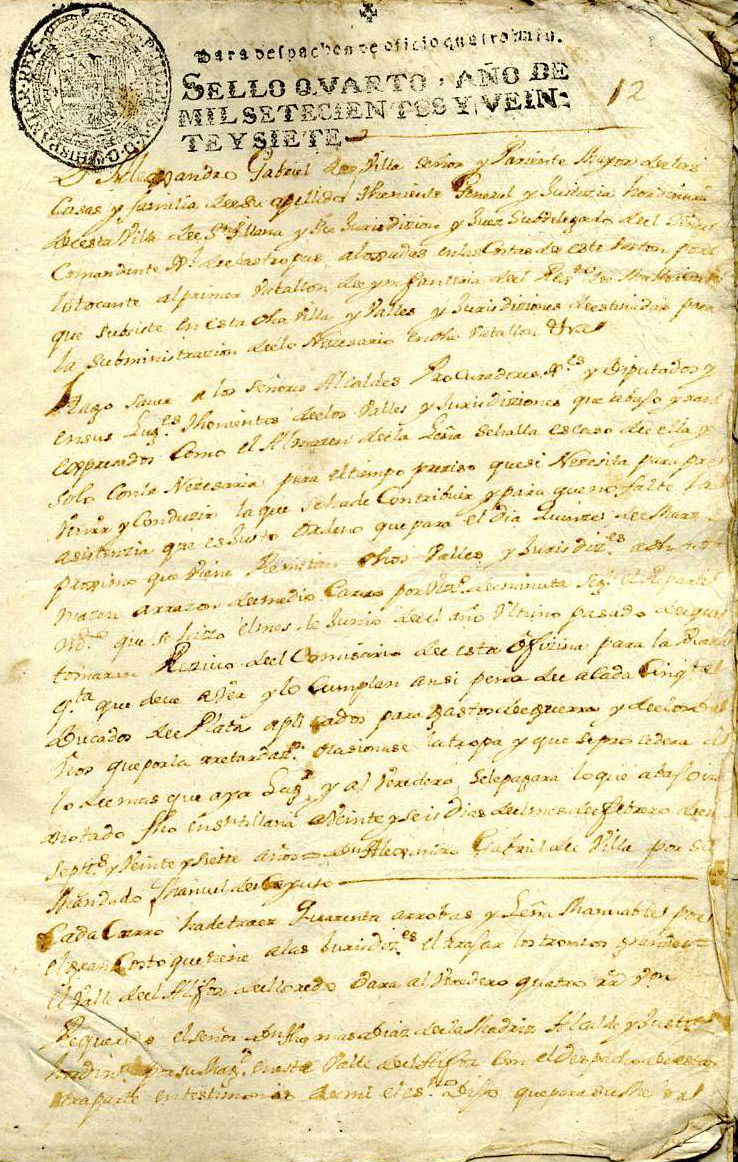 Para despachos de oficio quatro mrs.
SELLO QVARTO, AÑO DE
MIL SETECIENTOS Y VEIN:
TE Y SIETE
12
Dn Alexandro Gabriel de Villa señor y Pariente Mayor de las
Casas y familia de su apellido Theniente General y Justicia hordinaria
de esta Villa de Stillana y su Jurisdizion y Juez Subdelegado del
Comandante Gl de las tropas aloxadas en las Costas de este
lo tocante al primer Batallon de ynfanteria del
que subsiste en esta dha Villa y Valles y Jurisdiziones destinadas para
la subministrazion de lo Nezesario en dho Batallon
Hago saver a los señores Alcaldes Procuradores Gs y Diputados y
en sus Lugs Thenientes de los Valles y Jurisdiziones que abajo yran
espresados Como el Almazen de la Leña se halla escaso de ella y
solo con la Nezesaria para el tiempo preziso que si Nezesita para pre
venir y Conduzir la que se ha de Contribuir y para que no falte la
asistenzia que es justo Ordeno que para el Dia Quinze de Marzo
proximo que viene Remitan dhos Valles y Jurisdizs a dho
mazen a razon de medio Carro por Vzo de minuta
que se hizo el mes de Junio del año Ultimo pasado de que
tomaran Rezivo del Comisario de esta Ofizina para la
qta que deve aver y lo Cumplan ansi pena de a Cada
Ducados de Plata aplicados para Gastos de guerra y de los
ños que por la retardazn ocasionase la tropa y que se prozedera a
lo demas que aya Lugr y al Veredero se le pagara lo que abajo ira
notado fho en Stillana a Veinte y seis Dias del mes de febrero de
Septts y Veinte y Siette años = Dn Alexandro Gabriel de Villa por su
Mandado Manuel de Cayuso
Cada Carro ha de traer Quarenta arrobas y Leña Manuable por
el gran Costo que tiene a las Jurisdizs el trasar los troncos grandes =
El Valle del Alfoz de Lloredo Dara al Veredero quatro rr Von
Requerido el señor Dn Thomas Diaz de la Madriz Alcalde y Justizia
hordina por su Magd en este Valle del Alfoz Con el Despacho de esta
otra parte en testimonio de mi el esno Dijo que por su Mrd